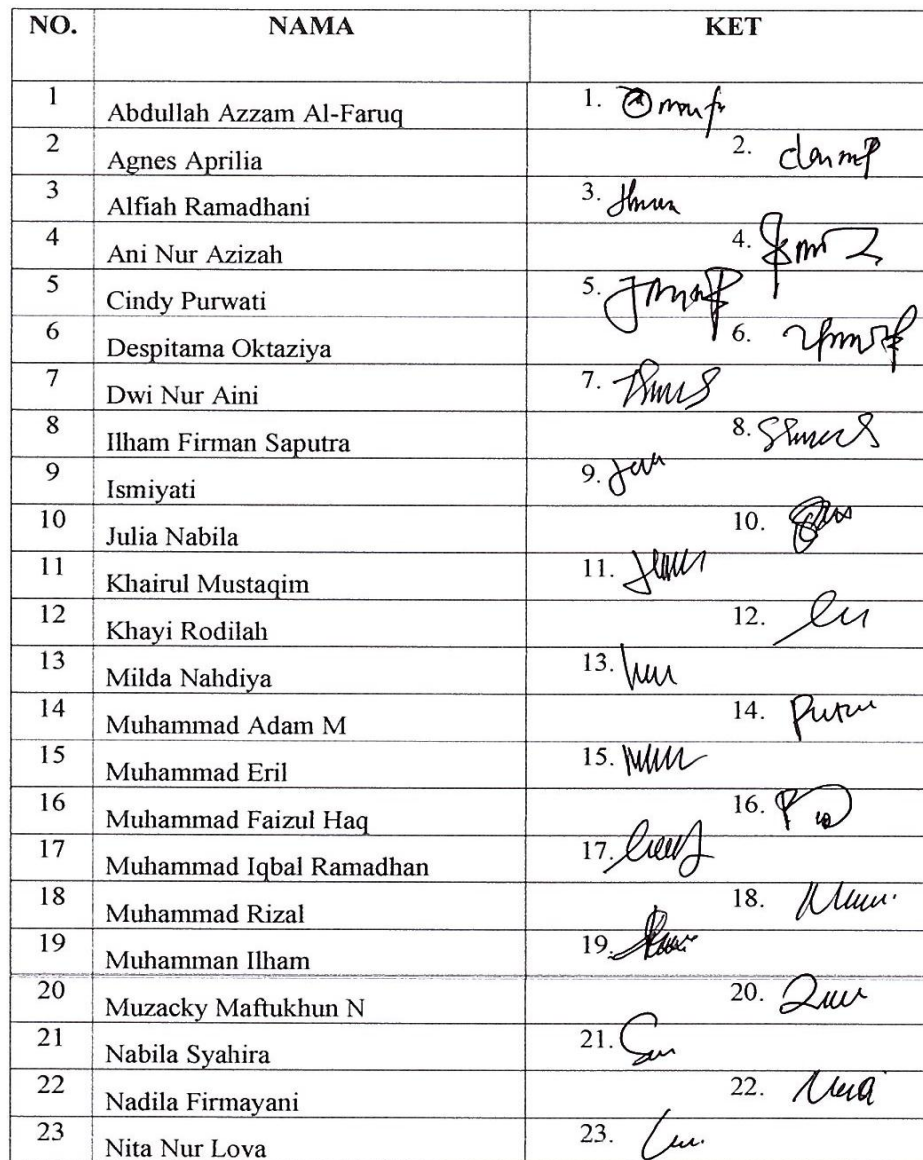 NO. NAMA KET
1 Abdullah Azzam Al-Faruq 1.
2 Agnes Aprilia 2.
3 Alfiah Ramadhani 3.
4 Ani Nur Azizah 4.
5 Cindy Purwati 5.
6 Despitama Oktaziya 6.
7 Dwi Nur Aini 7.
8 Ilham Firman Saputra 8.
9 Ismiyati 9.
10 Julia Nabila 10.
11 Khairul Mustaqim 11.
12 Khayi Rodilah 12.
13 Milda Nahdiya 13.
14 Muhammad Adam M 14.
15 Muhammad Eril 15.
16 Muhammad Faizul Haq 16.
17 Muhammad Iqbal Ramadhan 17.
18 Muhammad Rizal 18.
19 Muhamman Ilham 19.
20 Muzacky Maftukhun N 20.
21 Nabila Syahira 21.
22 Nadila Firmayani 22.
23 Nita Nur Lova 23.